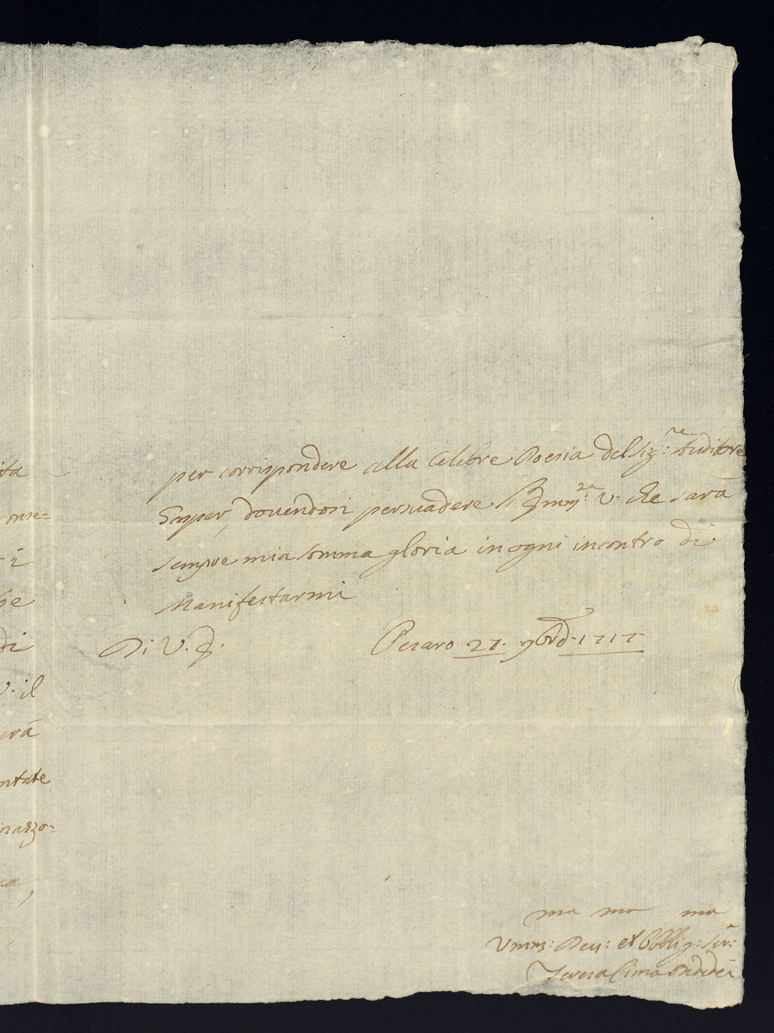 ita
onse=
di
v. il
erà
ntate
razzo=
ca,
per corrispondere alla Celebre Poesia del Sig:re Auditore
Gaspar, dovendosi persuadere V. che sarà
sempre mia somma gloria in ogni incontro di
Manifestarmi
Di V. S. Pesaro 27. 1717
ma ma ma
Umm: Dev: et Obblig: Ser:
Teresa Cima Ondedei